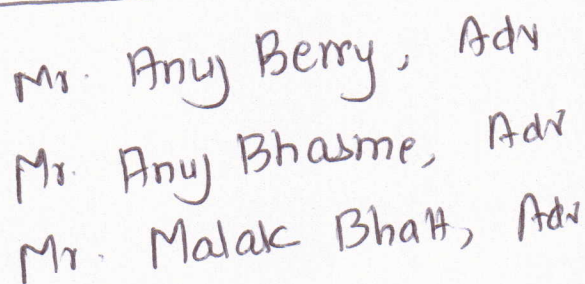 Mr. Anuj Berry, Adv
Mr. Anuj Bhasme, Adv
Mr. Malak Bhatt, Adv